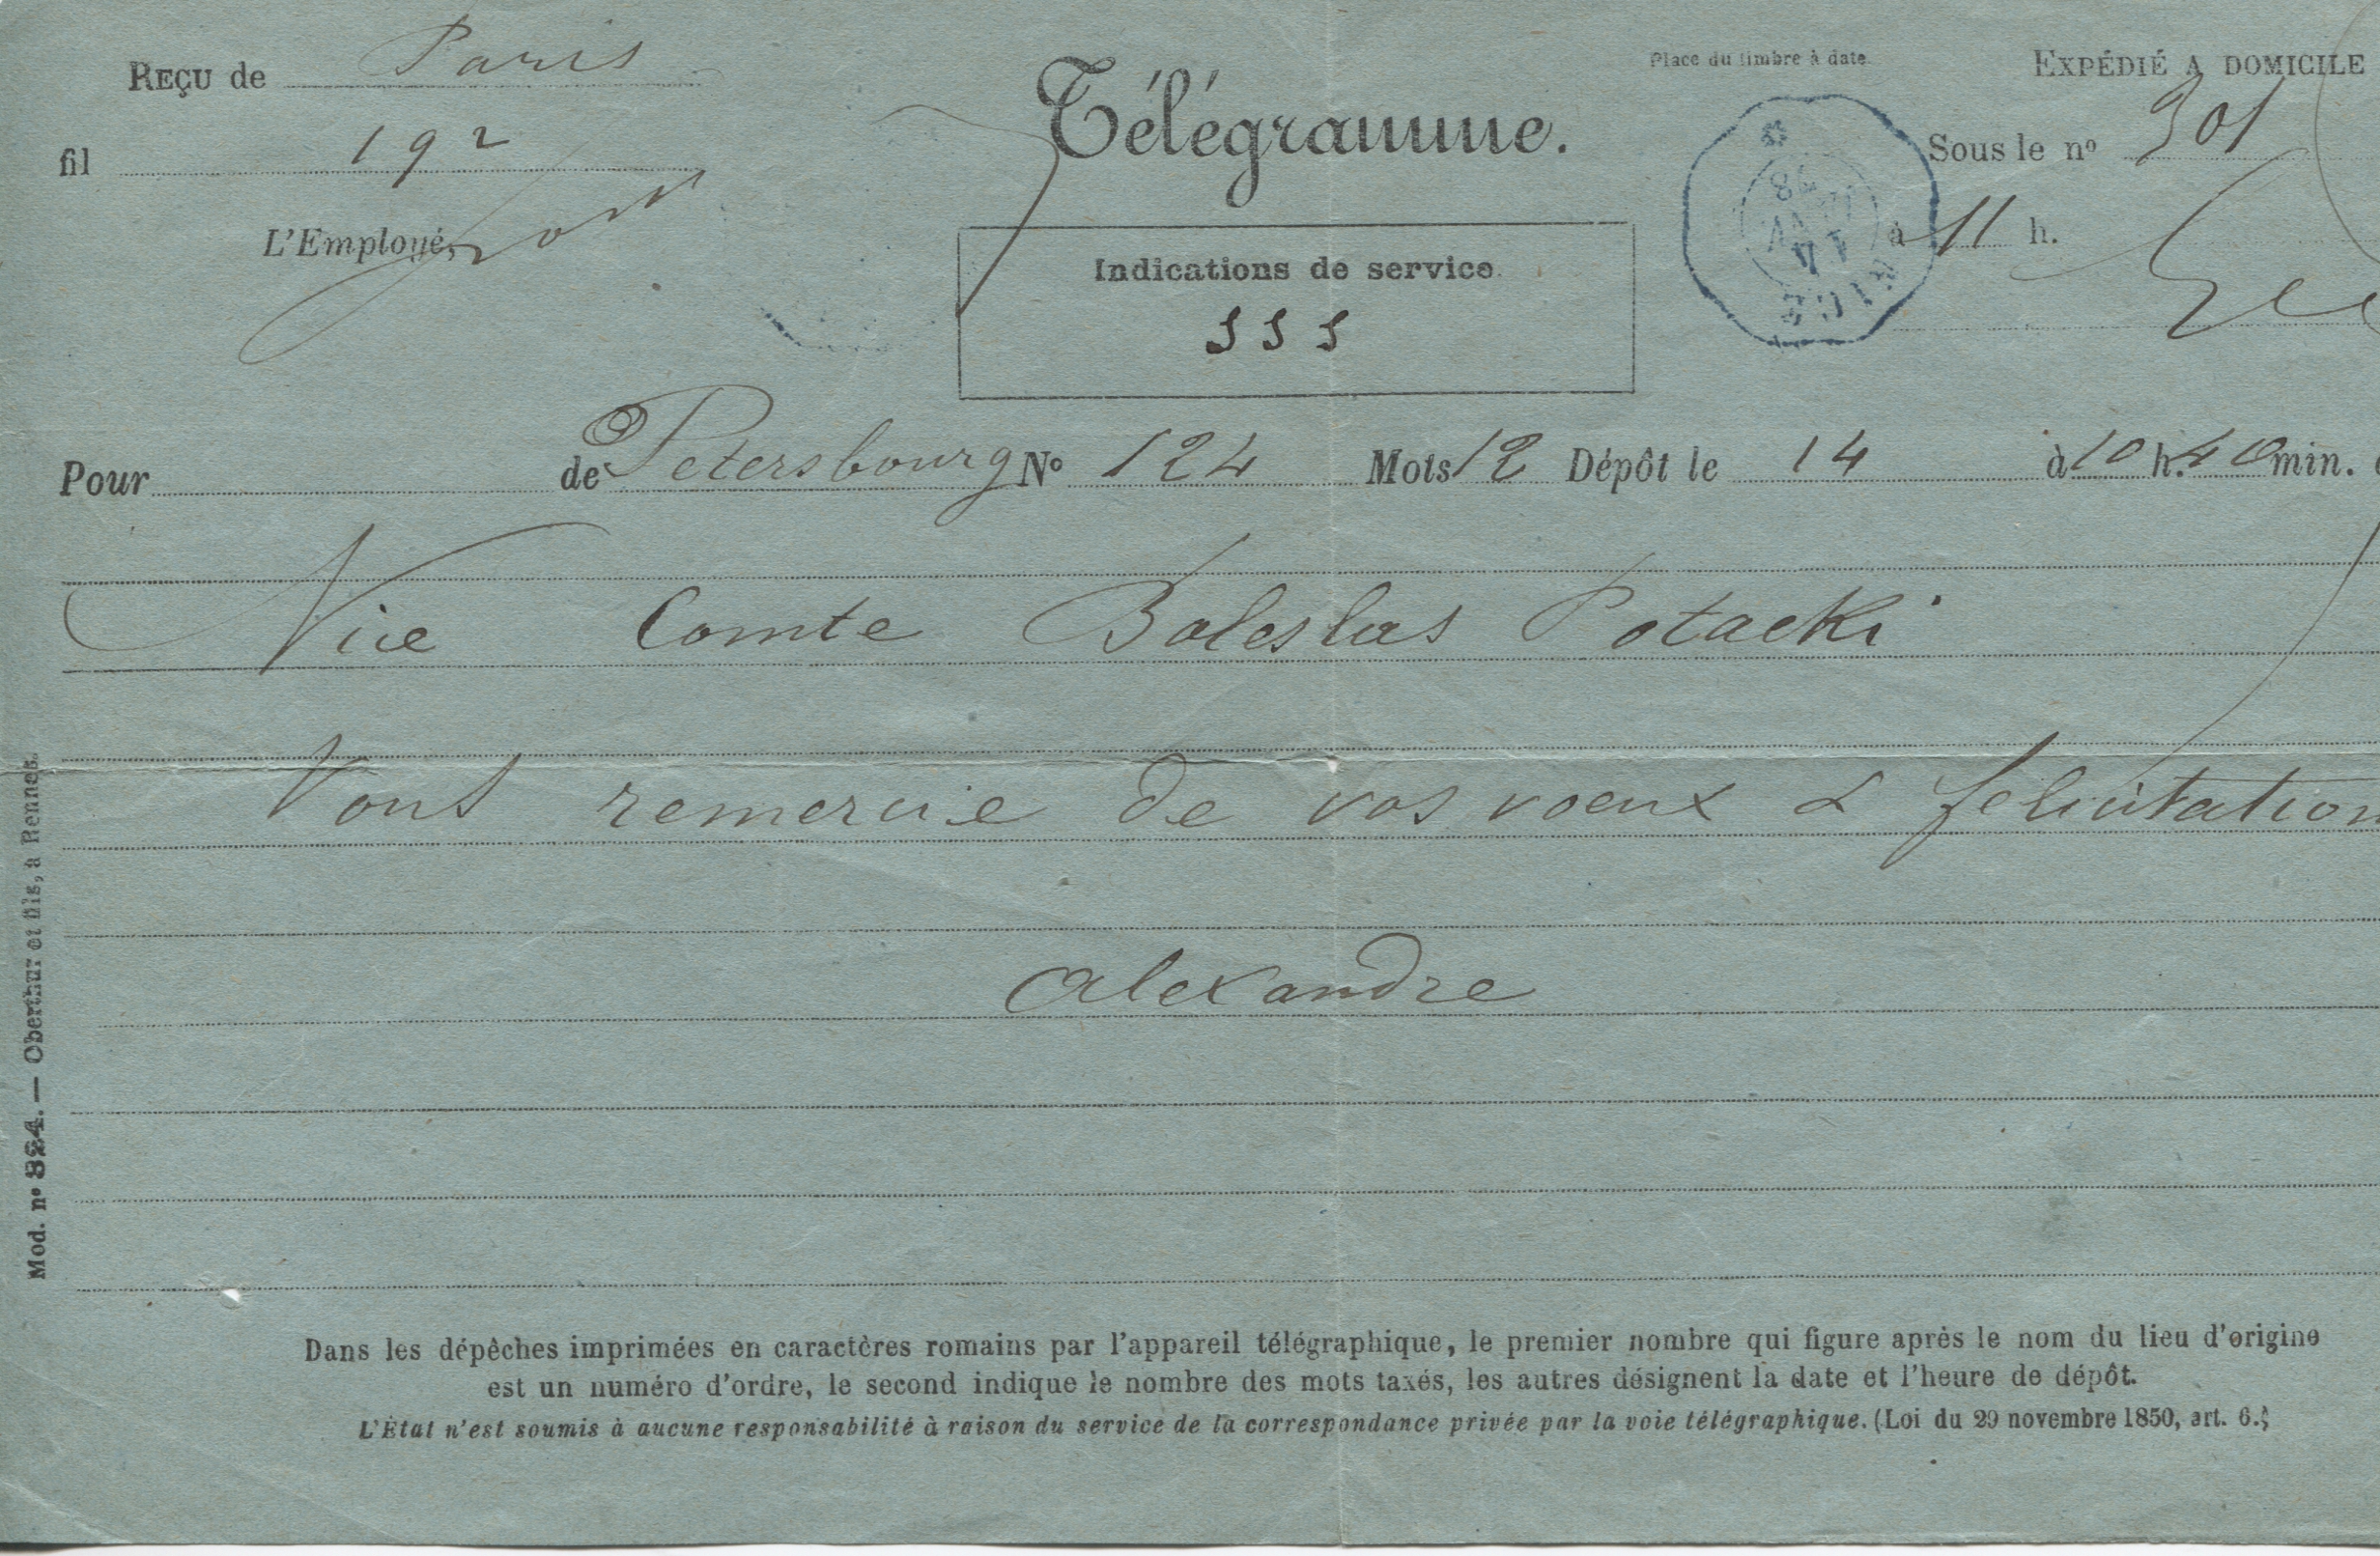 REÇU de Paris
Place du timbre à date.
EXPÉDIÉ A DOMICILE
fil 192
Télégramme.
Sous le nº 301
L'Employé,
à 11 h.
Indications de service.
S S S
78
JANV
14
NICE
Pour de Petersbourg Nº 124 Mots 12 Dépôt le 14 à 10 h. 40 min.
Nice Comte Boleslas Potacki
Vous remercie de vos voeux & felicitation
Alexandre
Mod. nº 824. — Oberthur et fils, à Rennes.
Dans les dépêches imprimées en caractères romains par l'appareil télégraphique, le premier nombre qui figure après le nom du lieu d'origine
est un numéro d'ordre, le second indique le nombre des mots taxés, les autres désignent la date et l'heure de dépôt.
L'État n'est soumis à aucune responsabilité à raison du service de la correspondance privée par la voie télégraphique. (Loi du 29 novembre 1850, art. 6.)